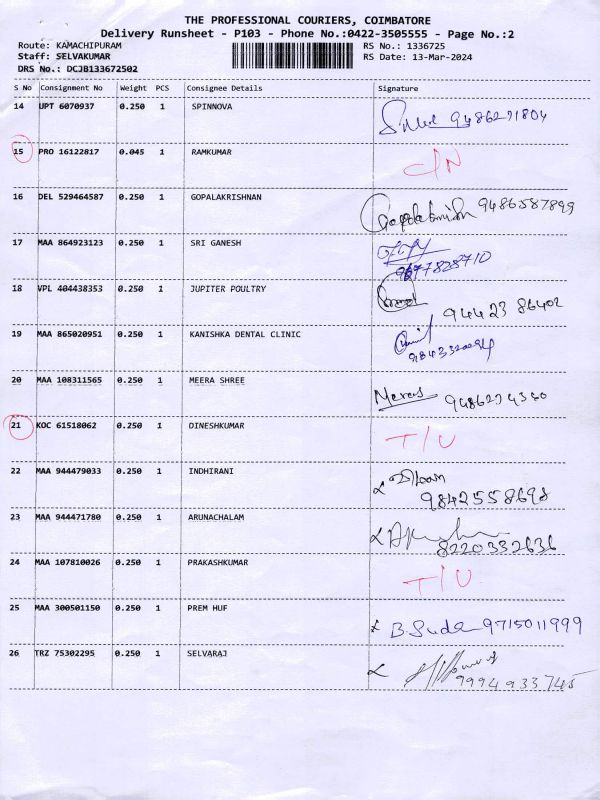 THE PROFESSIONAL COURIERS, COIMBATORE
Delivery Runsheet - P103 - Phone No.:0422-3505555 - Page No.:2
Route: KAMACHIPURAM RS No.: 1336725
Staff: SELVAKUMAR RS Date: 13-Mar-2024
DRS No.: DCJB133672502
S No Consignment No Weight PCS Consignee Details Signature
14 UPT 6070937 0.250 1 SPINNOVA 9486271804
15 PRO 16122817 0.045 1 RAMKUMAR C/N
16 DEL 529464587 0.250 1 GOPALAKRISHNAN Gopalakrishnan 9486587899
17 MAA 864923123 0.250 1 SRI GANESH 9677828710
18 VPL 404438353 0.250 1 JUPITER POULTRY 94423 86402
19 MAA 865020951 0.250 1 KANISHKA DENTAL CLINIC
20 MAA 108311565 0.250 1 MEERA SHREE 9486274340
21 KOC 61518062 0.250 1 DINESHKUMAR T/U
22 MAA 944479033 0.250 1 INDHIRANI 9842558698
23 MAA 944471780 0.250 1 ARUNACHALAM 8220332636
24 MAA 107810026 0.250 1 PRAKASHKUMAR T/U
25 MAA 300501150 0.250 1 PREM HUF B. Suda 9715011999
26 TRZ 75302295 0.250 1 SELVARAJ 9994933745